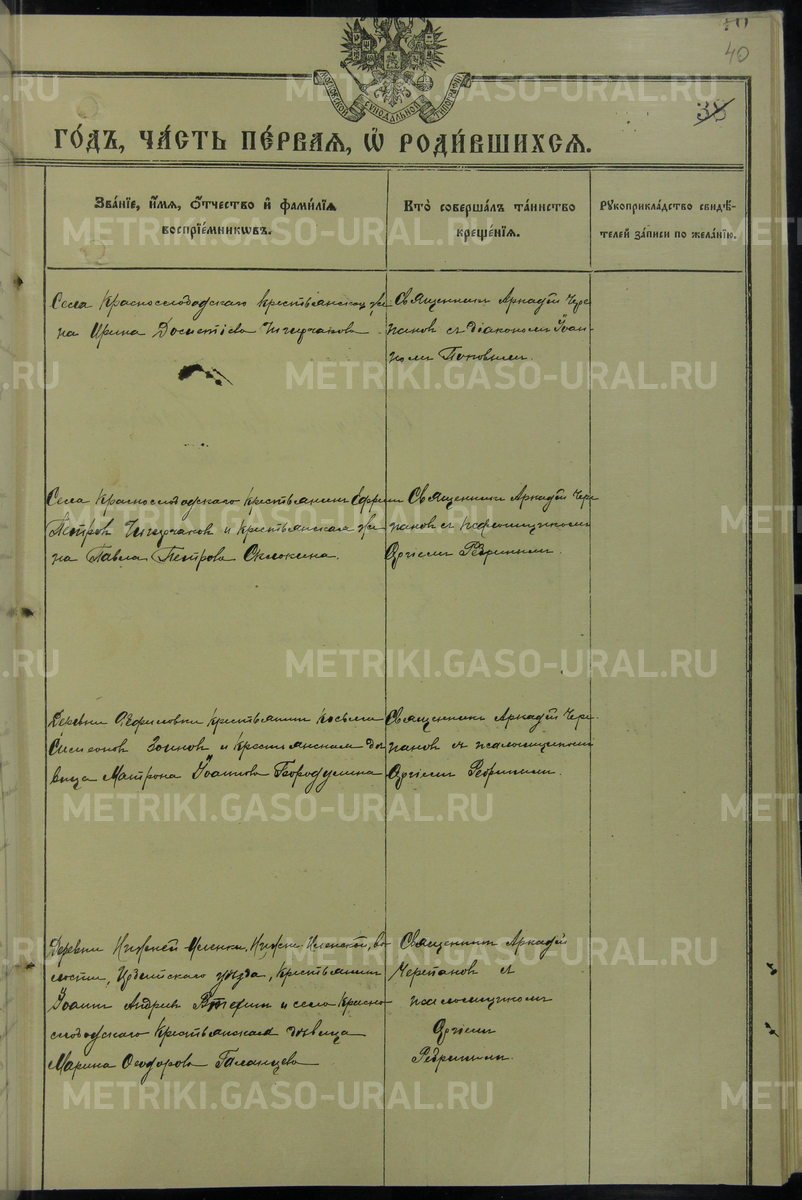 40
38
МОСКОВСКОЙ СѴНОДАЛЬНОЙ ТИПОГРАФІИ
ГО́ДЪ, ЧА́СТЬ ПЕ́РВАѦ, Ѡ҆ РОДИ́ВШИХСѦ.
ЗВА́НІЕ, И҆́МѦ, Ѻ҆́ТЧЕСТВО И҆ ФАМИ́ЛІѦ
ВОСПРІЕ́МНИКѠВЪ.
КТО̀ СОВЕРША́ЛЪ ТА́ИНСТВО
КРЕЩЕ́НІѦ.
РꙊКОПРИКЛА́ДСТВО СВИДѢ́-
ТЕЛЕЙ ЗА́ПИСИ ПО ЖЕЛА́НІЮ.
Села Краснослободскаго крестьянская же
на Ирина Досиѳеева Чигвичакова
Священникъ Аркадій Чере
пановъ съ діакономъ Іоан-
номъ Поповымъ.
Села Краснослободскаго крестьянинъ Ефремъ
Петровъ и крестьянская же
на Павла Петрова Склюкина.
Священникъ Аркадій Чере
пановъ съ псаломщикомъ
Ребринымъ.
Деревни крестьянинъ Косьма
Симеоновъ Зоиновъ и крестьянская дѣ
вица Матрона Іоаннова
Священникъ Аркадій Чере
пановъ съ псаломщикомъ
Ребринымъ.
Деревни Нижней Иленки, Нижне-Иленской, во
лости, Ирбитскаго уѣзда, крестьянинъ
Іоаннъ Андреевъ и села Красно
слободскаго крестьянская дѣвица
Марина Ѳеодорова Галанцева
Священникъ Аркадій
Черепановъ съ
псаломщикомъ
Ребринымъ.
METRIKI.GASO-URAL.RU